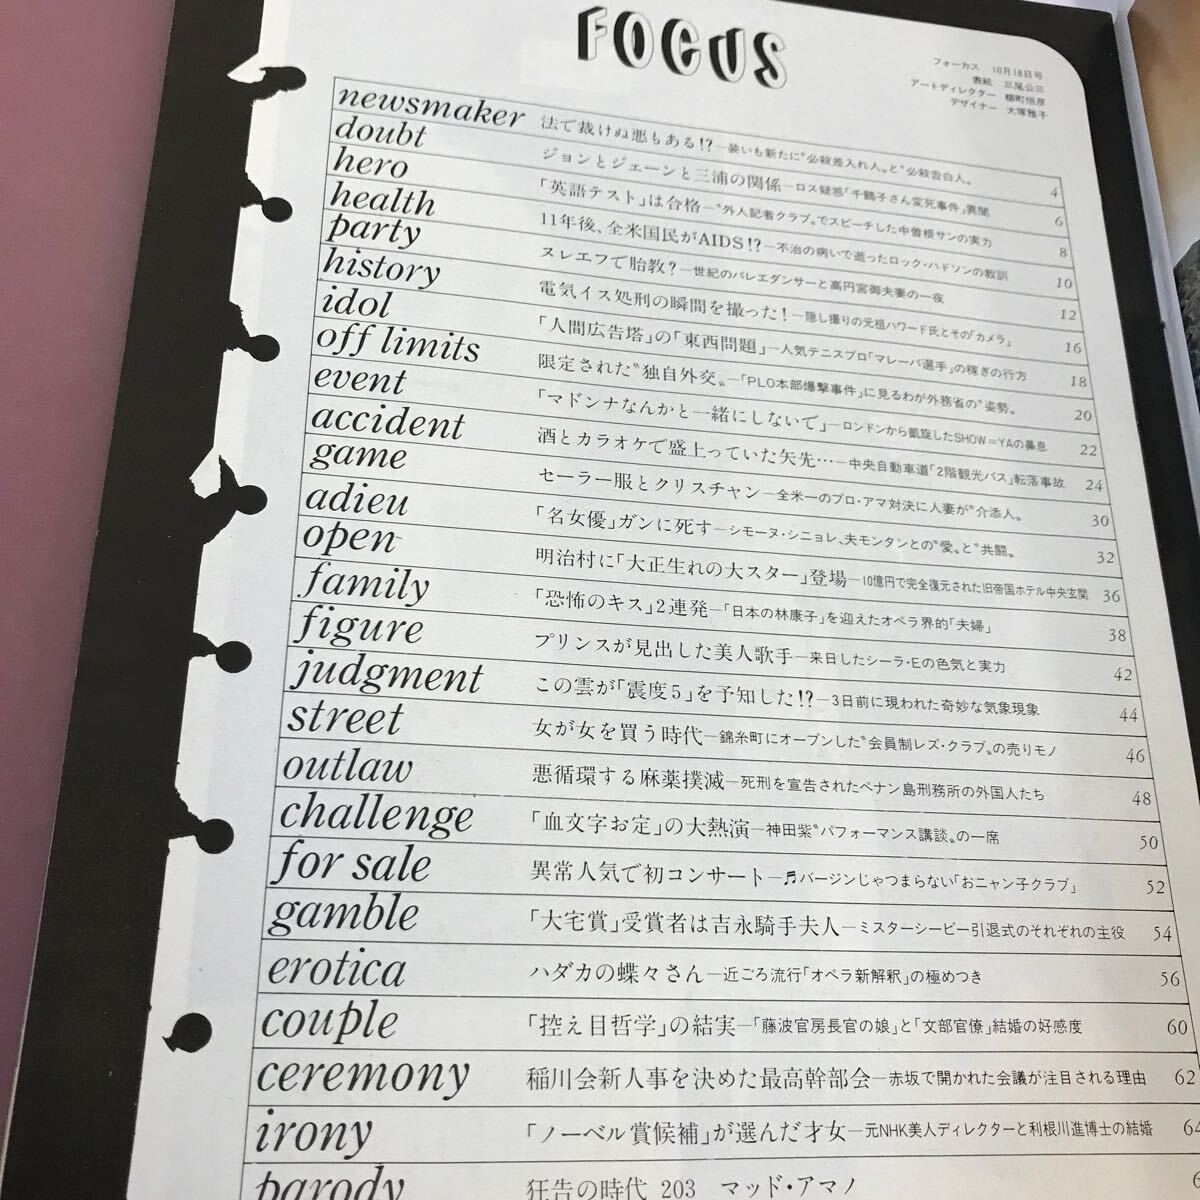 FOCUS
フォーカス 10月18日号
表紙 三尾公三
アートディレクター 櫛町恒彦
デザイナー 大塚雅子
newsmaker 法で裁けぬ悪もある!?—装いも新たに〝必殺差入れ人〟と〝必殺告白人〟 4
doubt ジョンとジェーンと三浦の関係—ロス疑惑「千鶴子さん変死事件」異聞 6
hero 「英語テスト」は合格—〝外人記者クラブ〟でスピーチした中曽根サンの実力 8
health 11年後、全米国民がAIDS!?—不治の病いで逝ったロック・ハドソンの教訓 10
party ヌレエフで胎教?—世紀のバレエダンサーと高円宮御夫妻の一夜 12
history 電気イス処刑の瞬間を撮った!—隠し撮りの元祖ハワード氏とその「カメラ」 16
idol 「人間広告塔」の「東西問題」—人気テニスプロ「マレーバ選手」の稼ぎの行方 18
off limits 限定された〝独自外交〟—「PLO本部爆撃事件」に見るわが外務省の〝姿勢〟 20
event 「マドンナなんかと一緒にしないで」—ロンドンから凱旋したSHOW=YAの鼻息 22
accident 酒とカラオケで盛上っていた矢先…—中央自動車道「2階観光バス」転落事故 24
game セーラー服とクリスチャン—全米一のプロ・アマ対決に人妻が〝介添人〟 30
adieu 「名女優」ガンに死す—シモーヌ・シニョレ、夫モンタンとの〝愛〟と〝共闘〟 32
open 明治村に「大正生れの大スター」登場—10億円で完全復元された旧帝国ホテル中央玄関 36
family 「恐怖のキス」2連発—「日本の林康子」を迎えたオペラ界的「夫婦」 38
figure プリンスが見出した美人歌手—来日したシーラ・Eの色気と実力 42
judgment この雲が「震度5」を予知した!?—3日前に現われた奇妙な気象現象 44
street 女が女を買う時代—錦糸町にオープンした〝会員制レズ・クラブ〟の売りモノ 46
outlaw 悪循環する麻薬撲滅—死刑を宣告されたペナン島刑務所の外国人たち 48
challenge 「血文字お定」の大熱演—神田紫〝パフォーマンス講談〟の一席 50
for sale 異常人気で初コンサート—♬バージンじゃつまらない「おニャン子クラブ」 52
gamble 「大宅賞」受賞者は吉永騎手夫人—ミスターシービー引退式のそれぞれの主役 54
erotica ハダカの蝶々さん—近ごろ流行「オペラ新解釈」の極めつき 56
couple 「控え目哲学」の結実—「藤波官房長官の娘」と「文部官僚」結婚の好感度 60
ceremony 稲川会新人事を決めた最高幹部会—赤坂で開かれた会議が注目される理由 62
irony 「ノーベル賞候補」が選んだ才女—元NHK美人ディレクターと利根川進博士の結婚 64
parody 狂告の時代 203 マッド・アマノ